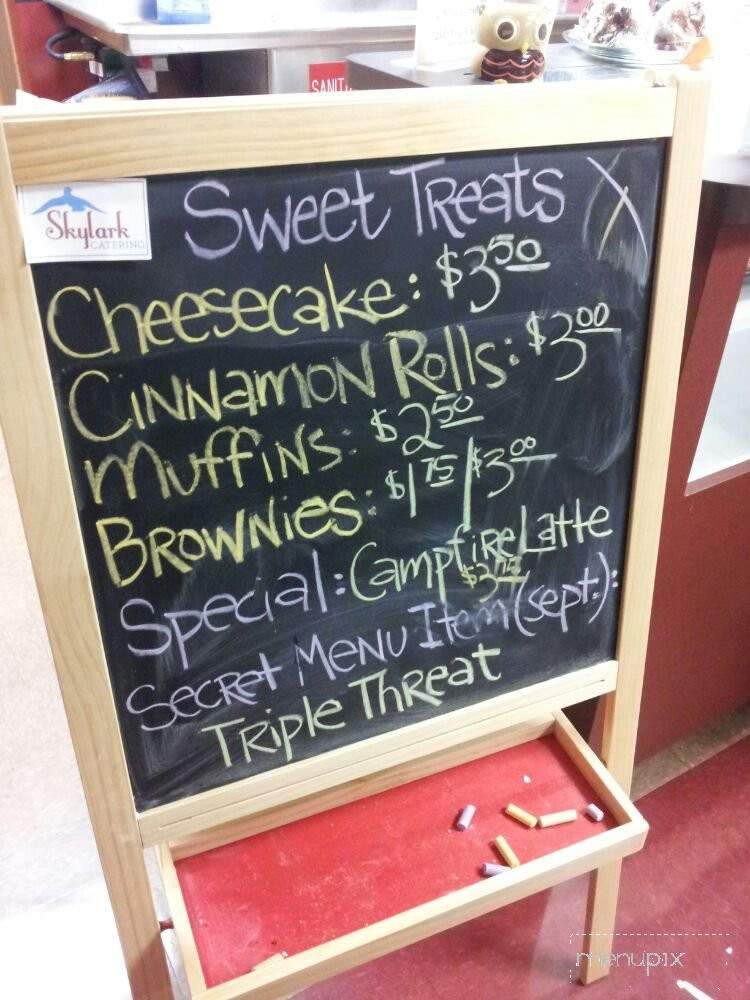 SANIT
Skylark
CATERING
Sweet Treats
Cheesecake: $3.50
Cinnamon Rolls: $3.00
Muffins: $2.50
Brownies: $1.75/$3.00
Special: Campfire Latte
$3.75
Secret Menu Item (sept.):
Triple Threat
menupix